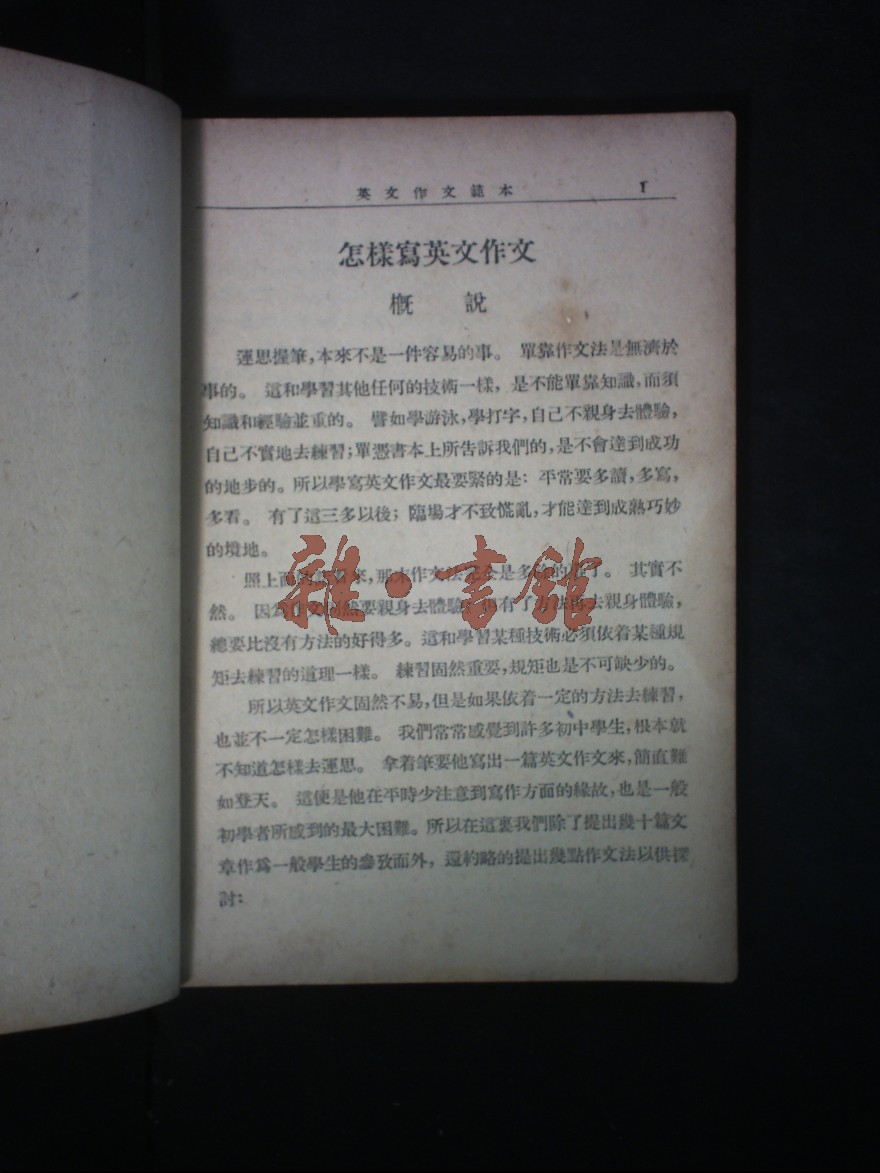 英文作文範本 1
怎樣寫英文作文
概 說
運思握筆,本來不是一件容易的事。 單靠作文法是無濟於
事的。 這和學習其他任何的技術一樣, 是不能單靠知識,而須
知識和經驗並重的。 譬如學游泳,學打字,自己不親身去體驗,
自己不實地去練習;單憑書本上所告訴我們的,是不會達到成功
的地步的。所以學寫英文作文最要緊的是: 平常要多讀,多寫,
多看。 有了這三多以後; 臨場才不致慌亂,才能達到成熟巧妙
的境地。
照上面 來,那末作文法完全是多餘的 了。 其實不
然。 因爲作文固然要親身去體驗, 有了方法再去親身體驗,
總要比沒有方法的好得多。這和學習某種技術必須依着某種規
矩去練習的道理一樣。 練習固然重要,規矩也是不可缺少的。
所以英文作文固然不易,但是如果依着一定的方法去練習,
也並不一定怎樣困難。 我們常常感覺到許多初中學生,根本就
不知道怎樣去運思。 拿着筆要他寫出一篇英文作文來,簡直難
如登天。 這便是他在平時少注意到寫作方面的緣故,也是一般
初學者所感到的最大困難。所以在這裏我們除了提出幾十篇文
章作爲一般學生的參攷而外, 還約略的提出幾點作文法以供探
討:
雜·書館